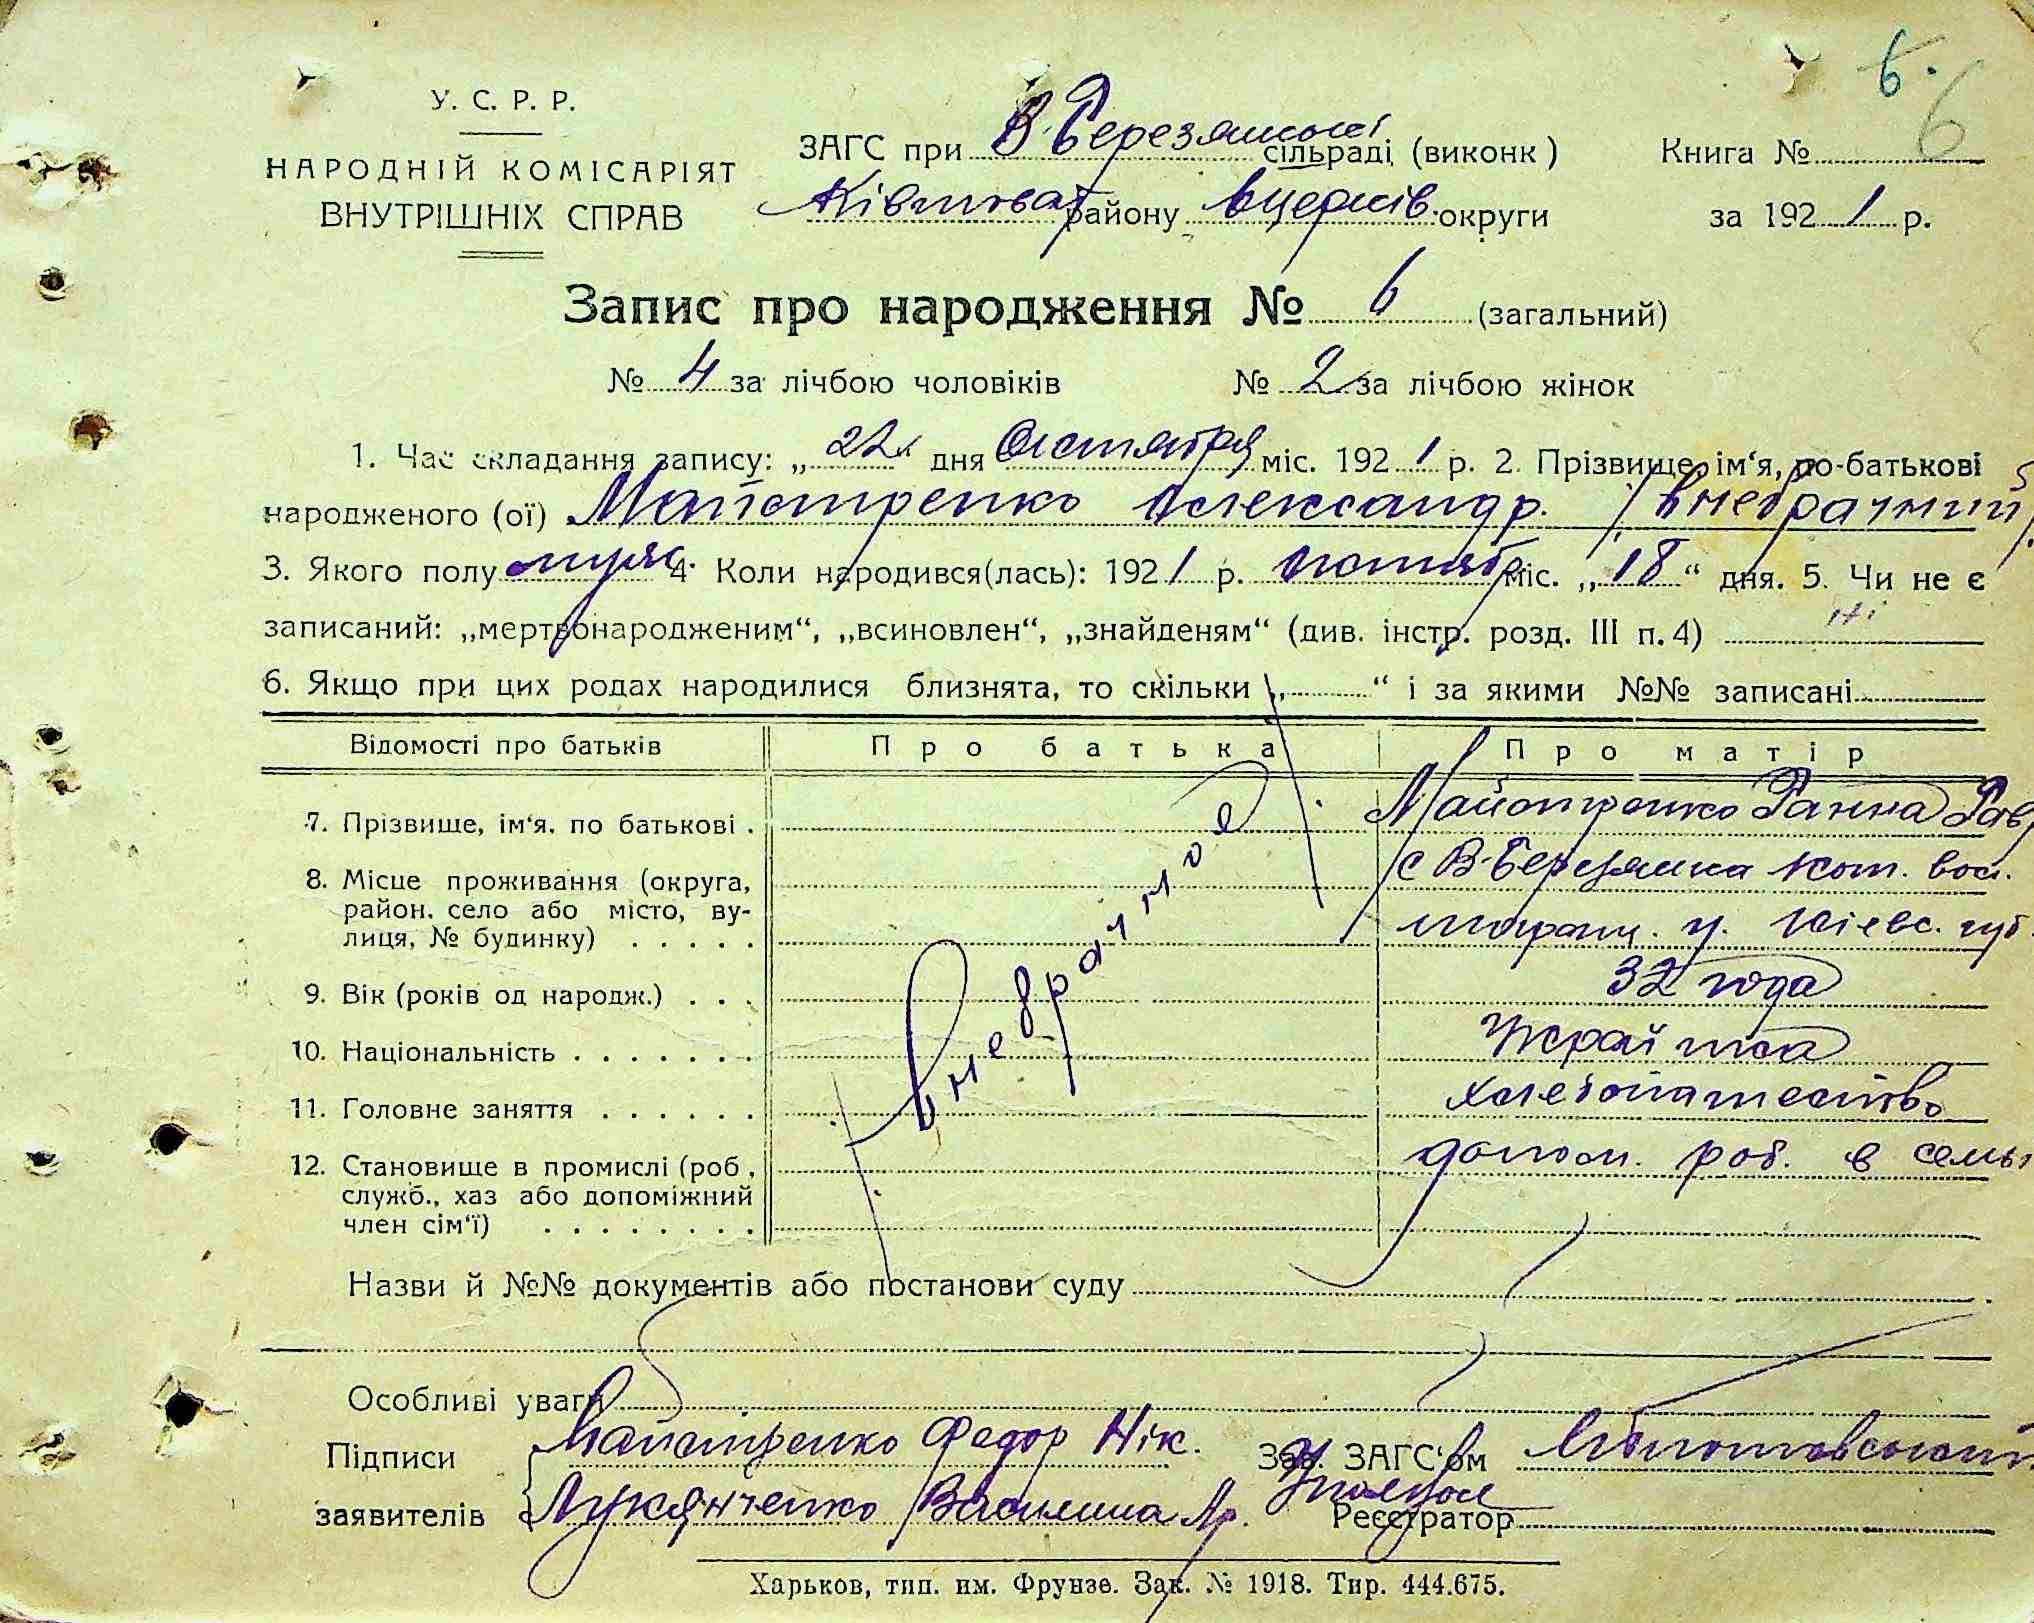 6.
6
У. С. Р. Р.
НАРОДНІЙ КОМІСАРІЯТ
ВНУТРІШНІХ СПРАВ
ЗАГС при В-Березянської сільраді (виконк)
району Бцерків. округи
Книга №
за 1921 р.
Запис про народження № 6 (загальний)
№ 4 за лічбою чоловіків № 2 за лічбою жінок
1. Час складання запису: „22" дня Октября міс. 1921 р. 2. Прізвище, ім'я, по-батькові
народженого (ої) Майстренко Александр. (внебрачний)
3. Якого полу муж. 4. Коли народився(лась): 1921 р. міс. „18" дня. 5. Чи не є
записаний: „мертвонародженим", „всиновлен", „знайденям" (див. інстр. розд. III п. 4) ні
6. Якщо при цих родах народилися близнята, то скільки „ " і за якими №№ записані
Відомості про батьків Про батька Про матір
7. Прізвище, ім'я, по батькові . Майстренко Ганна Гав
8. Місце проживання (округа, район, село або місто, вулиця, № будинку) . . . . . с В-Березянка вол.
у. Кіевс. губ.
9. Вік (років од народж.) . . . 32 года
10. Національність . . . . . . . Украінка
11. Головне заняття . . . . . . хлебопашество
12. Становище в промислі (роб., служб., хаз або допоміжний член сім'ї) . . . . . . . . допом. роб. в семьи
внебрачное
Назви й №№ документів або постанови суду
Особливі уваги
Підписи заявителів
Майстренко Федор Нік.
Лукянченко Василина
Зав. ЗАГС'ом
Реєстратор
Харьков, тип. им. Фрунзе. Зак. № 1918. Тир. 444.675.